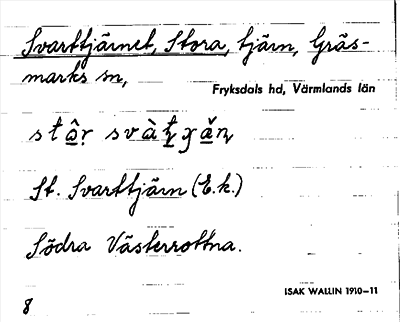 Svarttjärnet, Stora, tjärn, Gräs-
marks sn,
Fryksdals hd, Värmlands län
St. Svarttjärn (E.k.)
Södra Västerrottna.
ISAK WALLIN 1910–11
8